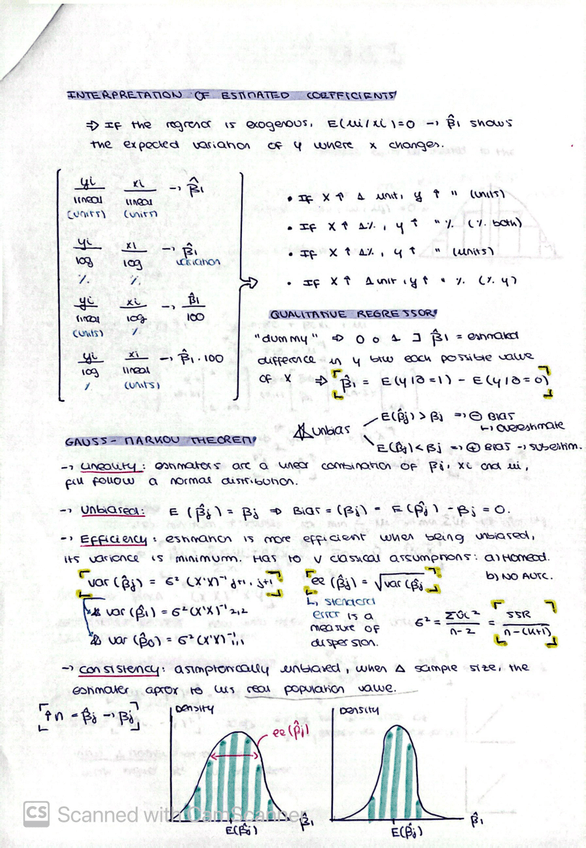 INTERPRETATION OF ESTIMATED COEFFICIENTS
⇒ If the regresor is exogenous, E(ui/xi)=0 → β̂1 shows
the expected variation of y where x changes.
yi xi → β̂1
lineal lineal
(units) (units)
yi xi → β̂1
log log variation
% %
yi xi → β̂1
lineal log 100
(units) %
yi xi → β̂1 · 100
log lineal
% (units)
• If X ↑ 1 unit, y ↑ " (units)
• If X ↑ 1%, y ↑ " % (% both)
• If X ↑ 1%, y ↑ " (units)
• If X ↑ 1 unit, y ↑ " % (% y)
QUALITATIVE REGRESSOR
"dummy" ⇒ 0 o 1 ] β̂1 = estimated
difference in y btw each possible value
of x ⇒ β̂1 = E(y/∂=1) - E(y/∂=0)
GAUSS-MARKOV THEOREM
Unbias
E(β̂j) > βj ⇒ ⊖ BIAS
↳ overestimate
E(β̂j) < βj ⇒ ⊕ BIAS → subestim.
→ Linearity: estimators are a linear combination of βj, xi and ui,
full follow a normal distribution.
→ Unbiased: E(β̂j) = βj ⇒ Bias = (βj) - E(β̂j) - βj = 0.
→ Efficiency: estimation is more efficient when being unbiased,
its variance is minimum. Has to V classical assumptions: a) Homoced.
b) NO AUTC.
var(β̂j) = σ² (X'X)⁻¹ j+1, j+1
ee(β̂j) = √var(β̂j)
var(β̂1) = σ² (X'X)⁻¹ 2,2
var(β̂0) = σ² (X'X)⁻¹ 1,1
↳ standard
error is a
measure of
dispersion.
σ² = Σûi² / n-2 = SSR / n-(k+1)
→ Consistency: asimptonically unbiased, when Δ sample size, the
estimater aprox to its real population value.
[↑n - β̂j → βj]
DENSITY
ee(β̂j)
E(β̂j)
β̂1
DENSITY
E(β̂j)
β̂1
CS Scanned with CamScanner